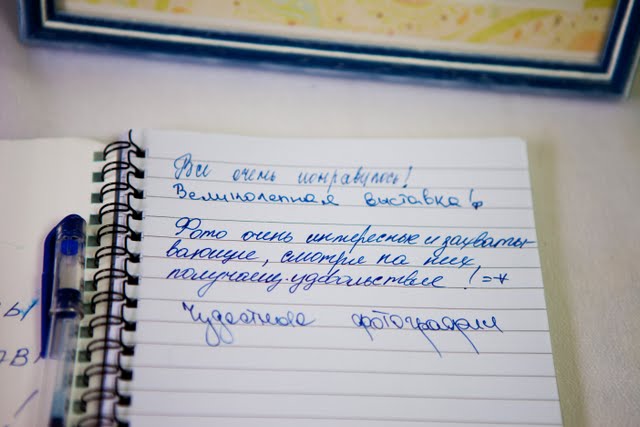 Все очень понравилось!
Великолепная выставка!
Фото очень интересные и захваты-
вающие, смотря на них
получаешь удовольствие ! =*
Чудесные фотографии
ы
ов